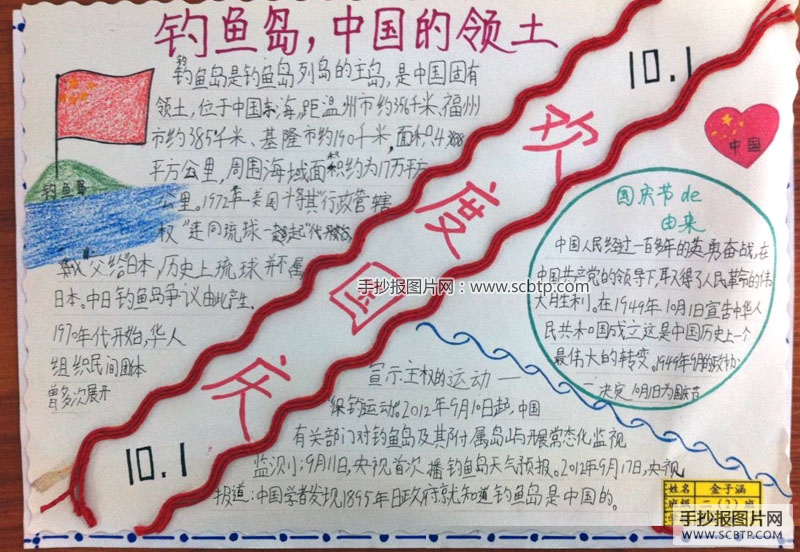 钓鱼岛，中国的领土
钓鱼岛是钓鱼岛列岛的主岛，是中国固有
领土，位于中国东海，距温州市约356千米，福州
市约385千米、基隆市约190千米，面积4.3838
平方公里，周围海域面积约为17万平方
公里。1972年美国将其"行政管辖
权"连同琉球一起
交给日本，历史上琉球并不属
日本。中日钓鱼岛争议由此产生.
1970年代开始，华人
组织民间团体
曾多次展开
宣示主权的运动——
保钓运动。2012年9月10日起，中国
有关部门对钓鱼岛及其附属岛屿开展常态化监视
监测；9月11日，央视首次播钓鱼岛天气预报。2012年9月17日，央视
报道：中国学者发现1895年日政府就知道钓鱼岛是中国的。
钓鱼岛
10.1
欢度国庆
10.1
中国
国庆节de
由来
中国人民经过一百多年的英勇奋战，在
中国共产党的领导下，取得了人民革命的伟
大胜利。在1949年10月1日宣告中华人
民共和国成立这是中国历史上一个
最伟大的转变。1949年9月的政协
一决定10月1日为国庆节
手抄报图片网：www.scbtp.com
姓名 金子涵
班级 二（2）班
手抄报图片网
SCBTP.COM